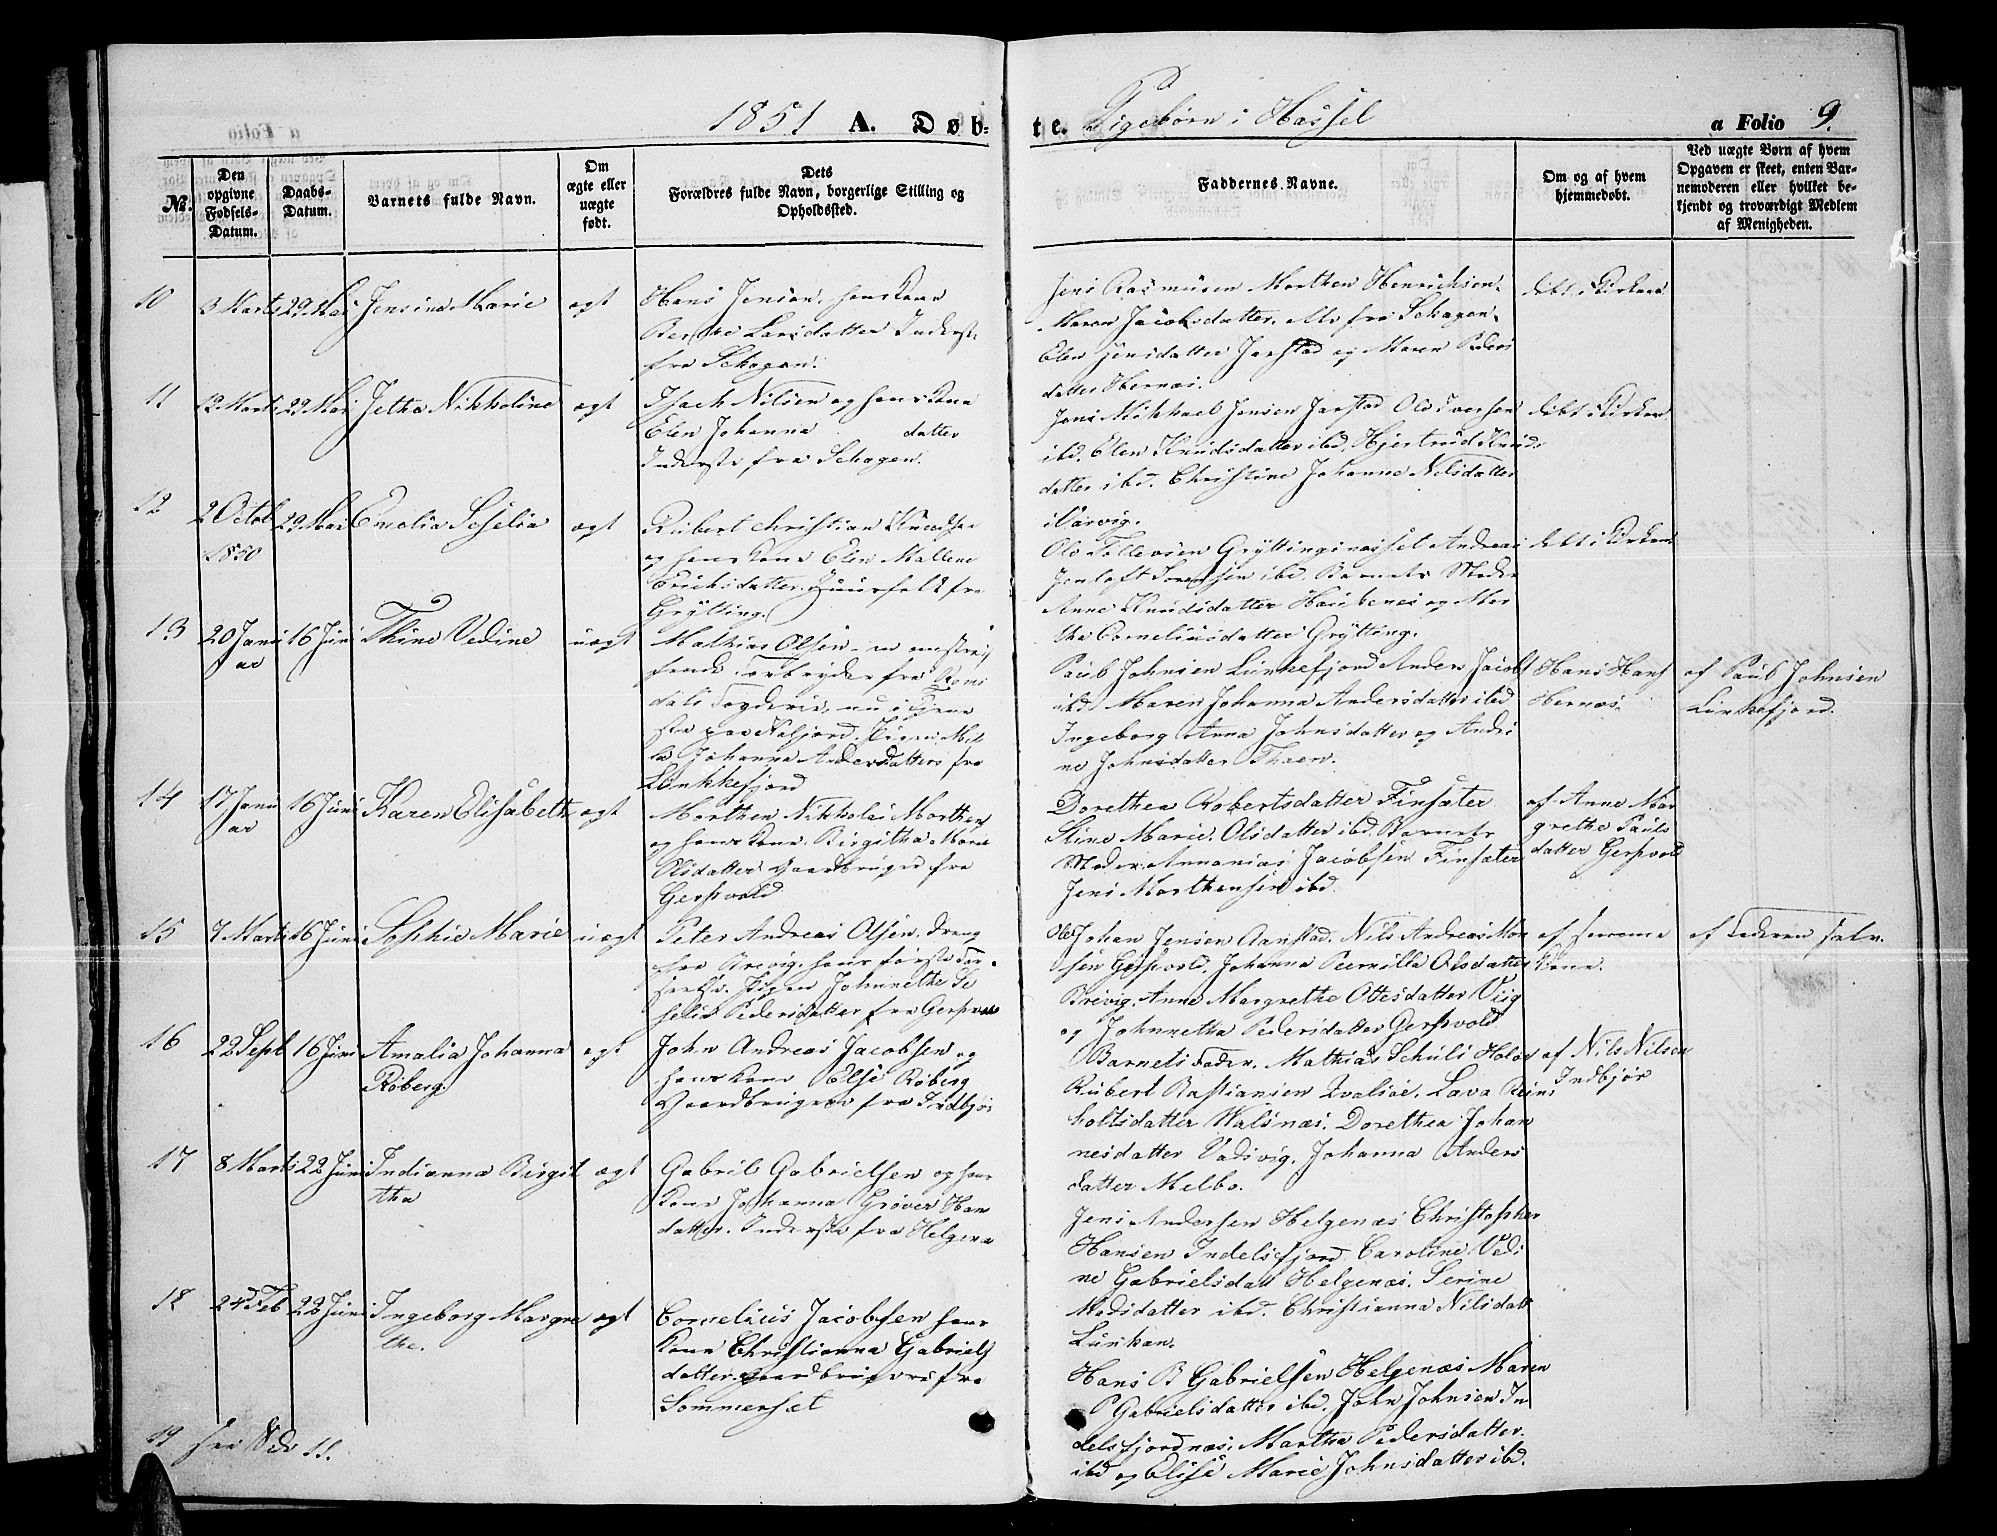 1851 A. Døb- te. Pigebørn i Hassel a Folio 9.
No.
Den opgivne Fødsels-Datum.
Daabs-Datum.
Barnets fulde Navn.
Om ægte eller uægte født.
Dets Forældres fulde Navn, borgerlige Stilling og Opholdssted.
Faddernes Navne.
Om og af hvem hjemmedøbt.
Ved uægte Børn af hvem Opgaven er skeet, enten Barnemoderen eller hvilket bekjendt og troværdigt Medlem af Menigheden.
10 3 Marts 29 Mai Jensine Marie ægt
Hans Jensen, hans Kone
Berthe Larsdatter Inderst
fra Schagen.
Jens Rasmusen Morthen Henrichsen,
Maren Jacobsdatter. Alle fra Schagen.
Elen Jensdatter Jarstad og Maren Peders
datter Hernæs.
døbt i Kirken
11 12 Marts 29 Mai Jetha Nikkoline ægt
Isach Nilsen og hans Kone
Elen Johanna datter
Inderste fra Schagen.
Jens Mikkael Jensen Jarstad Ole Iversen
ibd. Elen Knudsdatter ibd. Hjertrud Knuds
datter ibd. Christine Johanne Nilsdatter
i Varvig.
døbt i Kirken
12 2 Octob 1850 29 Mai Emelia Seselia ægt
Rubert Christian Knudsen
og hans Kone Elen Mallene
Erichsdatter. Huusfolk fra
Grytting.
Ole Tollevsen Gryttingsnæsset Andreas
Jenloft Sorensen ibd. Barnets Moder
Anne Knudsdatter Haukenes og Mar
the Corneliusdatter Grytting.
døbt i Kirken
13 20 Janu ar 16 Juni Thine Vedine uægt
Mathias Olsen en omstrei
fende Forbryder fra Roms
dals Fogderie, nu i Tjene
ste paa Kalfjord. Pigen Mil
la Johanna Andersdatter fra
Lunkkefjord
Paul Johnsen Lunkefjord Anders Jacobs
ibd. Maren Johanna Andersdatter ibd
Ingeborg Anna Johnsdatter og Andri
ne Johnsdatter Theen.
Hans Hans
Hernæs.
af Paul Johnsen
Lunkefjord.
14 17 Janu ar 16 Juni Karen Elisabeth ægt
Morthen Nikkolai Morthens
og hans Kone Birgitha Marie
Olsdatter Gaardbruger fra
Gerssvold
Dorethea Robertsdatter Finsæter
Stine Marie Olsdatter ibd. Barnets
Moder. Annanias Jacobsen Finsæter
Jens Morthensen ibd.
af Anne Mar
grethe Pauls
datter Gerssvold
15 7 Marts 16 Juni Sophie Marie uægt
Peter Andreas Olsen. Dreng
fra Brevig. hans første For
seelse. Pigen Johnnethe Se
selia Pedersdatter fra Gerssvold
Ole Johan Jensen Aanstad. Nils Andreas Mon
sen Gerssvold. Johanna Pernilla Olsdatter
Brevig. Anne Margrethe Ottesdatter Viig
og Johnnetha Pedersdatter Gerssvold
af samme
Kone.
af Faderen selv.
16 22 Sept 16 Juni Amalia Johanna Røberg ægt
John Andreas Jacobsen og
hans Kone Else Røberg
Gaardbrugere fra Indbjør
Barnets Fader. Mathias Schuls Holdø
Rubert Bastiansen Qvalsøe. Lava Rein
holtsdatter Walsnæs. Dorethea Johan
nesdatter Vadsvig. Johanna Anders
datter Melbo.
af Nils Nilsen
Indbjør
17 8 Marts 22 Juni Indianna Birgit tha ægt
Gabriel Gabrielsen og hans
Kone Johanna Grøver Hans
datter. Inderste fra Helgenæs
Jens Andersen Helgenæs Christopher
Hansen Indelsfjord Caroline Vedi
ne Gabrielsdatt Helgenæs. Serine
Madsdatter ibd. Christianna Nilsdatt
Lunkan.
18 24 Feb 22 Juni Ingeborg Margre the. ægt
Cornelius Jacobsen hans
Kone Christianna Gabriels
datter gaardbrugere fra
Sommerset
Hans B Gabrielsen Helgenæs Maren
P Gabrielsdatter ibd. John Johnsen In
delsfjordnæs. Martha Pedersdatter.
ibd og Elise Marie Johnsdatter ibd.
19 see Side 11.